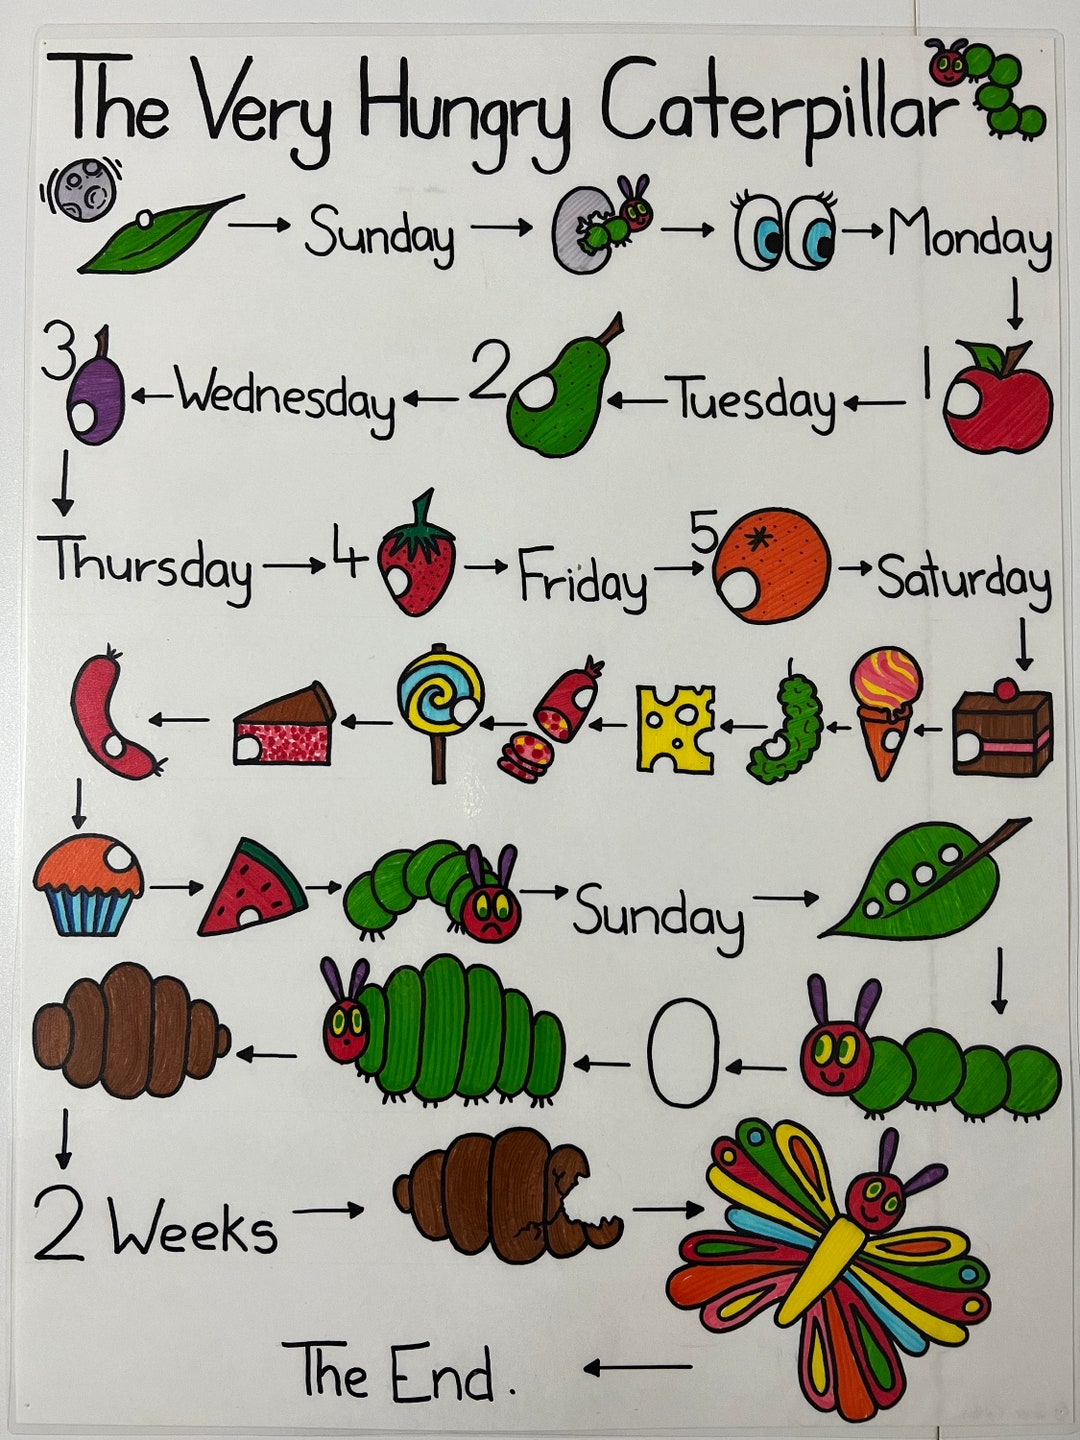 The Very Hungry Caterpillar
Sunday Monday
3 Wednesday 2 Tuesday 1
Thursday 4 Friday 5 Saturday
Sunday
0
2 Weeks
The End.